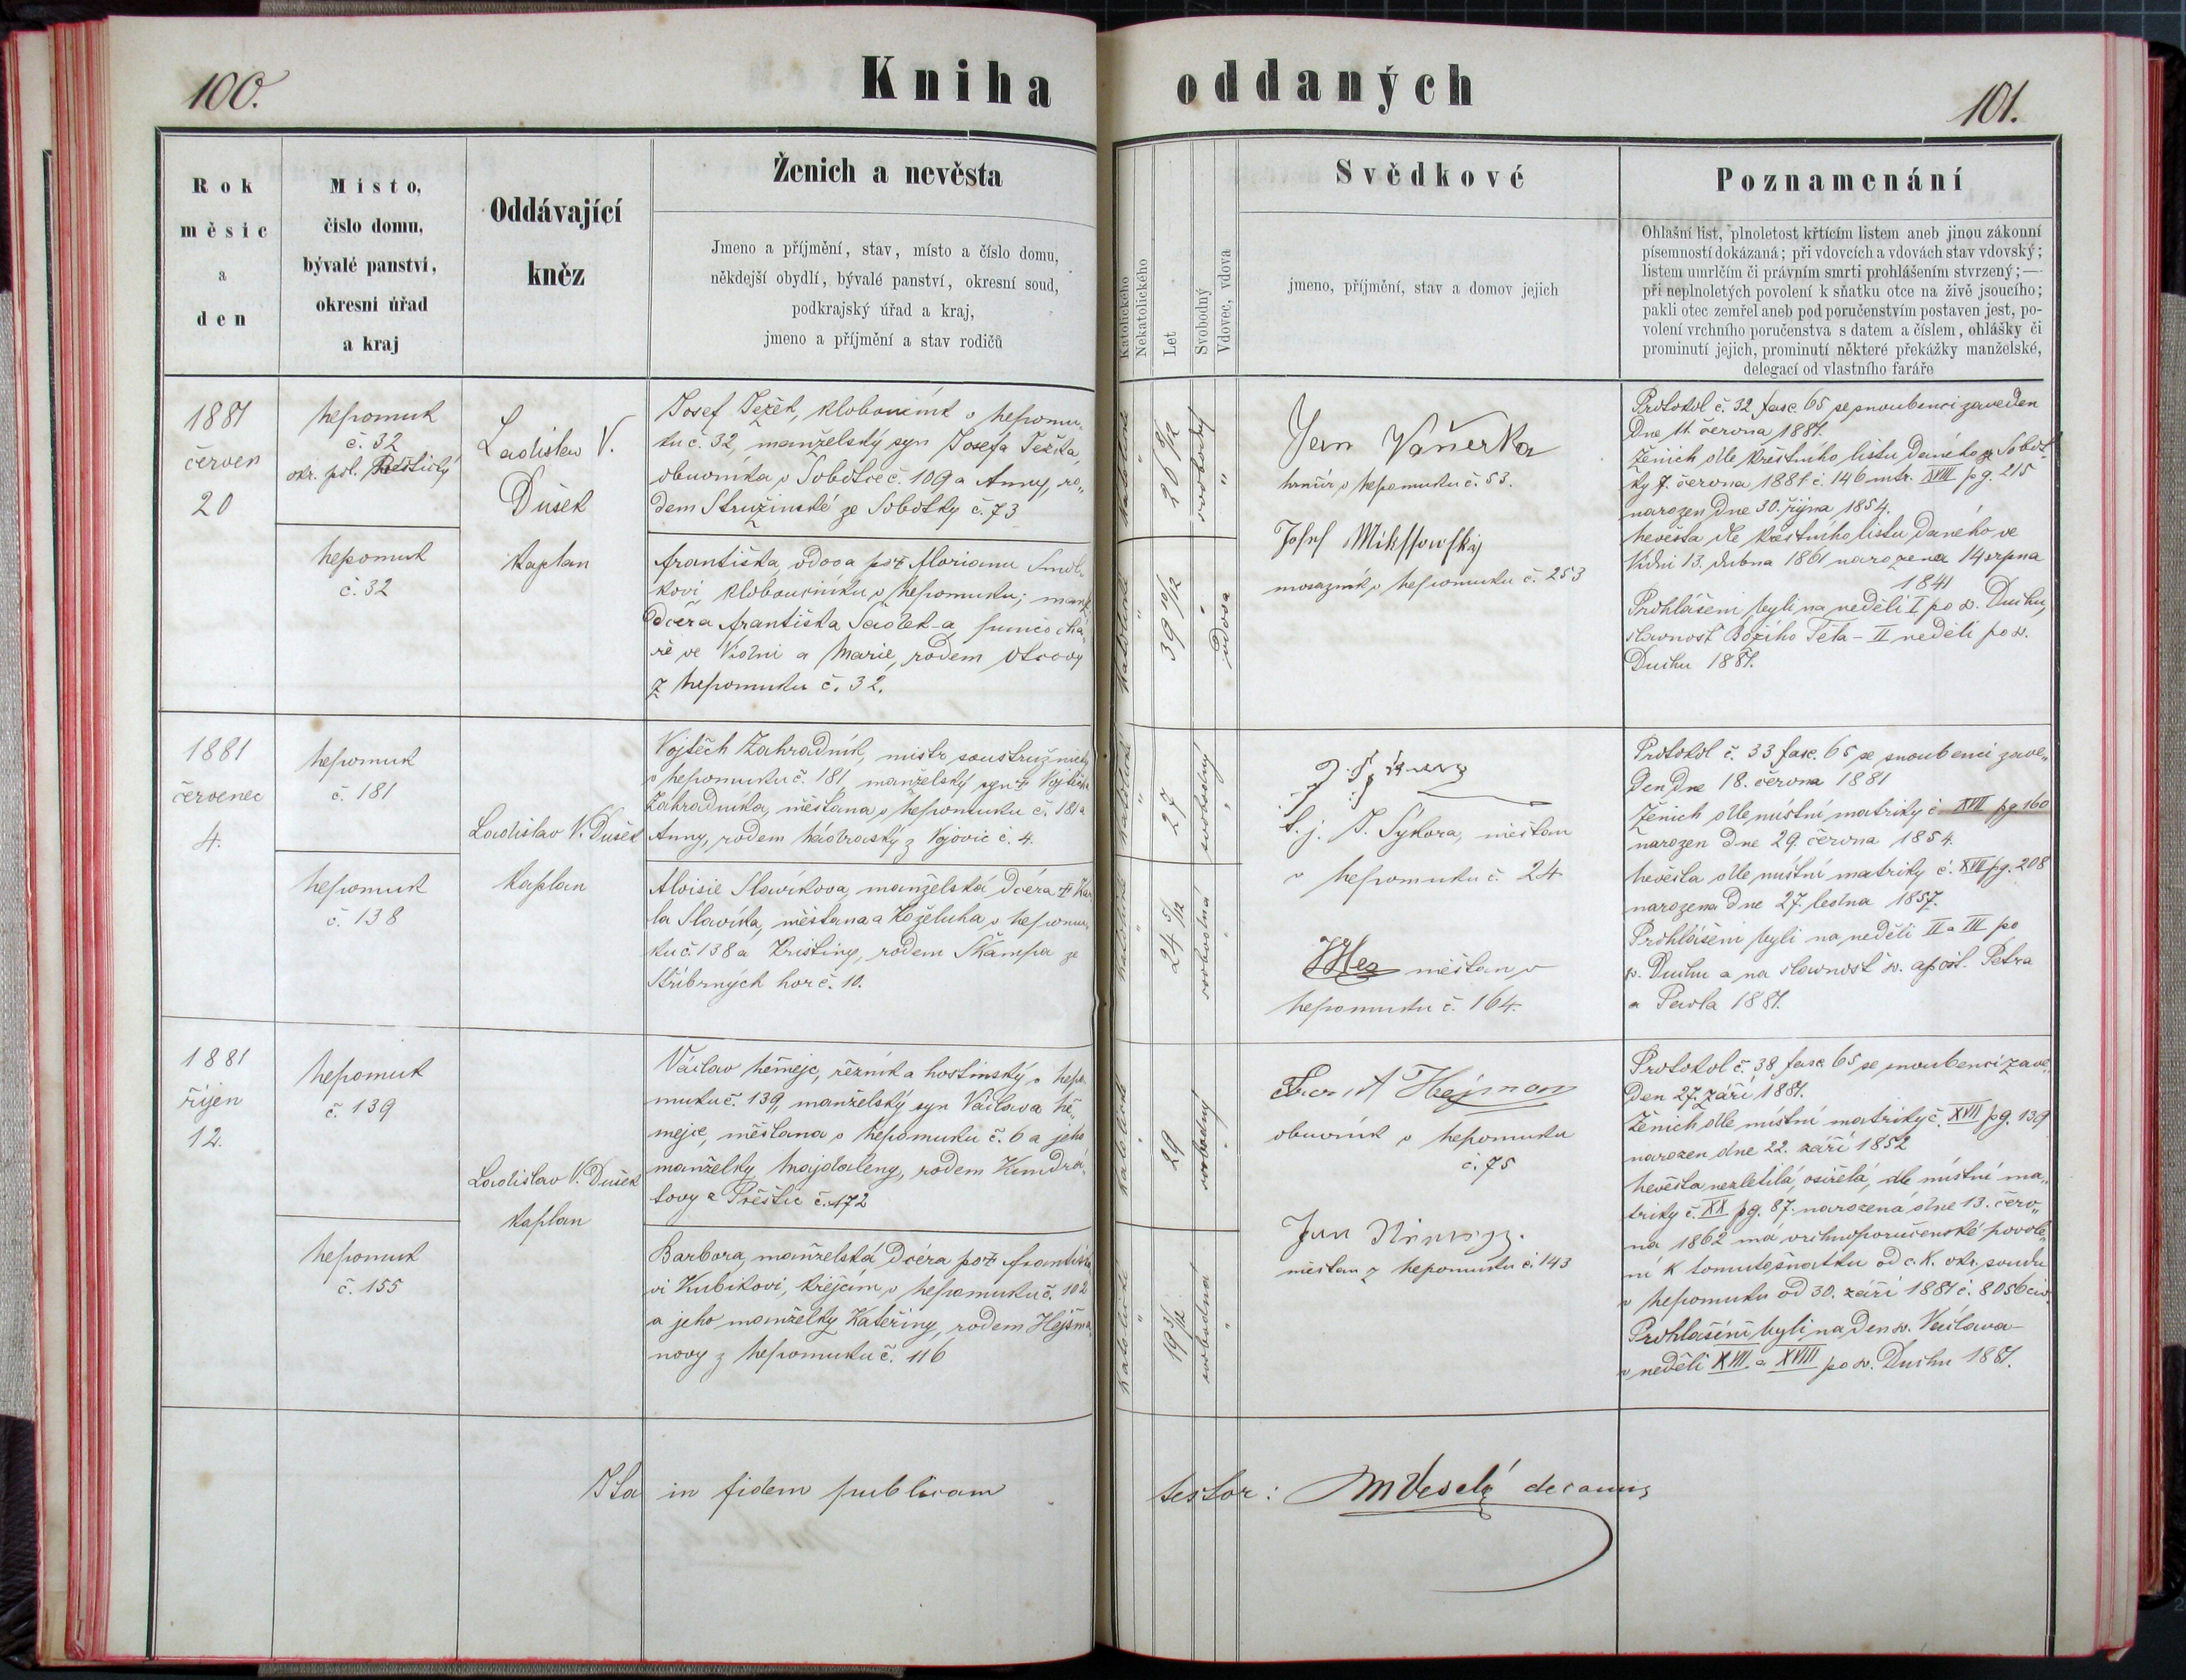 100.
Kniha oddaných
101.
Rok
měsíc
a
den
Místo,
číslo domu,
bývalé panství,
okresní úřad
a kraj
Oddávající
kněz
Ženich a nevěsta
Jmeno a příjmění, stav, místo a číslo domu,
někdejší obydlí, bývalé panství, okresní soud,
podkrajský úřad a kraj,
jmeno a příjmění a stav rodičů
Katolického
Nekatolického
Let
Svobodný
Vdovec, vdova
Svědkové
jmeno, příjmění, stav a domov jejich
Poznamenání
Ohlašní list, plnoletost křtícím listem aneb jinou zákonní
písemností dokázaná; při vdovcích a vdovách stav vdovský;
listem umrlčím či právním smrti prohlášením stvrzený;—
při neplnoletých povolení k sňatku otce na živě jsoucího;
pakli otec zemřel aneb pod poručenstvím postaven jest, po-
volení vrchního poručenstva s datem a číslem, ohlášky či
prominutí jejich, prominutí některé překážky manželské,
delegací od vlastního faráře
1881
červen
20
Nepomuk
č. 32
okr. pol.
Nepomuk
č. 32
Ladislav V.
Dušek
kaplan
Josef Ježek, kloboučník v Nepomu-
ku č. 32, manželský syn Josefa Ježka,
obuvníka v Sobotce č. 109 a Anny, ro-
dem Stružinské ze Sobotky č. 73
Františka, vdova po † Florianu
kovi, kloboučníku v Nepomuku; manž.
dcera Františka
ře ve Vídni a Marie, rodem
z Nepomuku č. 32.
katolické
26 8/12
svobodný
katolické
39 10/12
vdova
Jan Vaňerka
hrnčíř v Nepomuku č. 53.
Josef
mosazník v Nepomuku č. 253
Protokol č. 32 fasc. 65 se snoubenci zaveden
dne 11. června 1881.
Ženich dle křestního listu daného ze Sobot-
ky 7. června 1881 č. 146 mtr. XVIII pg. 215
narozen dne 30. října 1854.
Nevěsta dle křestního listu daného ve
Vídni 13. dubna 1861 narozena 14 srpna
1841
Prohlášeni byli na neděli I po sv. Duchu,
slavnost Božího Těla – II neděli po sv.
Duchu 1881.
1881
červenec
4.
Nepomuk
č. 181
Nepomuk
č. 138
Ladislav V. Dušek
kaplan
Vojtěch Zahradník, mistr soustružnický
v Nepomuku č. 181 manželský syn † Vojtěcha
Zahradníka, měšťana v Nepomuku č. 181 a
Anny, rodem z Vojovic č. 4.
Aloisie Slavíkova, manželská dcéra † Kar-
la Slavíka, měšťana a koželuha v Nepomu-
ku č. 138 a Kristiny, rodem Škampa ze
Stříbrných hor č. 10.
katolické
27
svobodný
katolické
24 5/12
svobodná
t. j. J. Sýkora, měšťan
v Nepomuku č. 24
měšťan v
Nepomuku č. 164.
Protokol č. 33 fasc. 65 se snoubenci zave-
den dne 18. června 1881
Ženich dle místní matriky č. XVII pg. 160
narozen dne 29. června 1854.
Nevěsta dle místní matriky č. XVII pg. 208
narozena dne 27. ledna 1857.
Prohlášeni byli na neděli II a III po
sv. Duchu a na slavnost sv. apošt. Petra
a Pavla 1881.
1881
říjen
12.
Nepomuk
č. 139
Nepomuk
č. 155
Ladislav V. Dušek
kaplan
Václav Němejc, řezník a hostinský v Nepo-
muku č. 139, manželský syn Václava Ně-
mejce, měšťana v Nepomuku č. 6 a jeho
manželky Majdaleny, rodem Kundrá-
tovy z Přeštic č. 172
Barbora, manželská dcéra po † Františ-
vi Kubíkovi, krejčím v Nepomuku č. 102
a jeho manželky Kateřiny, rodem Hejšma-
novy z Nepomuku č. 116
katolické
29
svobodný
katolické
19 3/12
svobodná
Hejšman
obuvník v Nepomuku
č. 75
Jan
měšťan z Nepomuku č. 143
Protokol č. 38 fasc. 65 se snoubenci zave-
den 27. září 1881.
Ženich dle místní matriky č. XVII pg. 139
narozen dne 22. září 1852
Nevěsta nezletilá, osiřelá, dle místní ma-
triky č. XX pg. 87. narozená dne 13. červ-
na 1862 má vrchnoporučenské povole-
ní k tomuto sňatku od c. k. okr. soudu
v Nepomuku od 30. září 1881 č. 8056 civ.
Prohlášeni byli na den sv. Václava –
v neděli XVII. a XVIII po sv. Duchu 1881.
Ita in fidem publicam
testor: M Veselý decanus